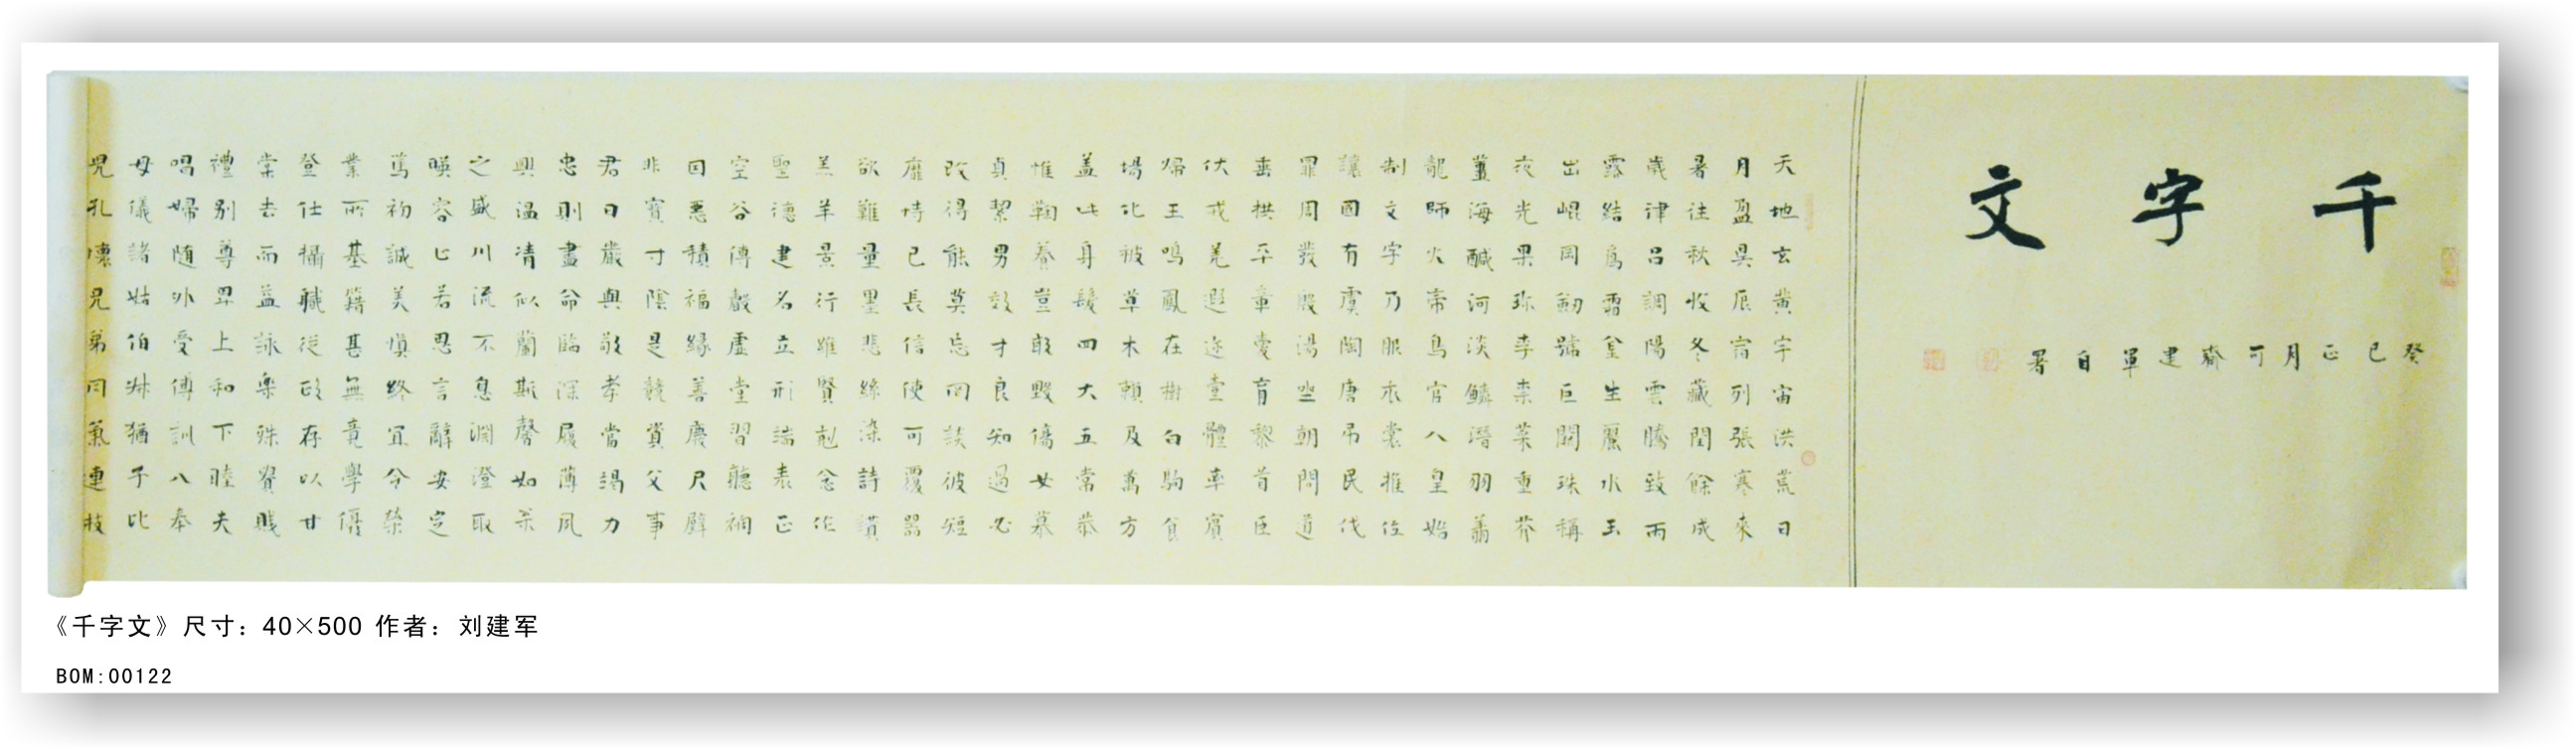 千字文
癸巳正月可齋建軍自署
天地玄黄宇宙洪荒日
月盈昃辰宿列張寒來
暑往秋收冬藏閏餘成
歲律吕調陽雲騰致雨
露結為霜金生麗水玉
出崐岡劒號巨闕珠稱
夜光果珍李柰菜重芥
薑海鹹河淡鱗潛羽翔
龍師火帝鳥官人皇始
制文字乃服衣裳推位
讓國有虞陶唐吊民伐
罪周發殷湯坐朝問道
垂拱平章愛育黎首臣
伏戎羌遐邇壹體率賓
歸王鳴鳳在樹白駒食
場化被草木賴及萬方
盖此身髮四大五常恭
惟鞠養豈敢毁傷女慕
貞絜男效才良知過必
改得能莫忘罔談彼短
靡恃己長信使可覆器
欲難量墨悲絲染詩讚
羔羊景行維賢剋念作
聖德建名立形端表正
空谷傳聲虚堂習聽禍
因惡積福緣善慶尺璧
非寶寸陰是競資父事
君曰嚴與敬孝當竭力
忠則盡命臨深履薄夙
興温凊似蘭斯馨如松
之盛川流不息淵澄取
暎容止若思言辭安定
篤初誠美慎終宜令榮
業所基籍甚無竟學優
登仕攝職從政存以甘
棠去而益詠樂殊貴賤
禮别尊卑上和下睦夫
唱婦随外受傅訓入奉
母儀諸姑伯叔猶子比
兒孔懷兄弟同氣連枝
《千字文》尺寸：40×500 作者：刘建军
BOM:00122